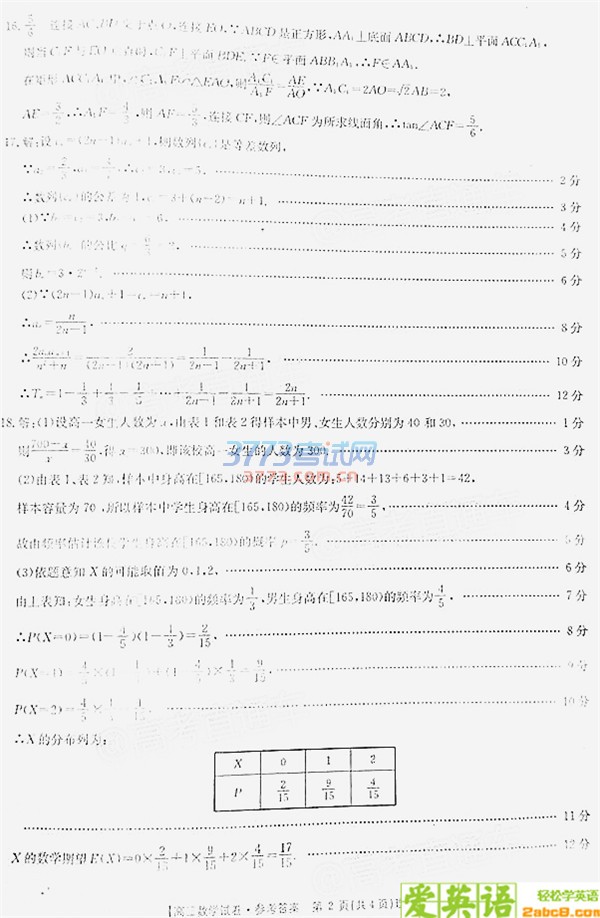 16. 5/6 连接 AC,BD 交于点O,连接EO,∵ABCD是正方形,AA₁⊥底面ABCD,∴BD⊥平面ACC₁A₁,
则当C₁F与EO垂直时,C₁F⊥平面BDE,∵F∈平面ABB₁A₁,∴F∈AA₁,
在矩形ACC₁A₁中,△C₁A₁F∽△EAO,则A₁C₁/A₁F=AE/AO,∵A₁C₁=2AO=√2AB=2,
AE=3/2,∴A₁F=4/3,则AF=,连接CF,则∠ACF为所求线面角,∴tan∠ACF=5/6.
17.解:设cₙ=(2n-1)aₙ+1,则数列{cₙ}是等差数列,
∵a₂=2/3,∴c₂=3, =5. 2分
∴数列{cₙ}的公差为1,cₙ=3+(n-2)=n+1. 3分
(1)∵b₁=c₂=3,b₂= =6. 4分
∴数列{bₙ}的公比q=6/3=2. 5分
则bₙ=3·2ⁿ⁻¹. 6分
(2)∵(2n-1)aₙ+1=cₙ=n+1,
∴aₙ=n/(2n-1). 8分
∴2aₙaₙ₊₁/(n²+n)=2/((2n-1)(2n+1))=1/(2n-1)-1/(2n+1). 10分
∴Tₙ=1-1/3+1/3-1/5+…+1/(2n-1)-1/(2n+1)=2n/(2n+1). 12分
18.解:(1)设高一女生人数为x,由表1和表2得样本中男、女生人数分别为40和30, 1分
则(700-x)/x=40/30,得x=300,即该校高一女生的人数为300. 3分
(2)由表1、表2知,样本中身高在[165,180)的学生人数为:5+14+13+6+3+1=42,
样本容量为70,所以样本中学生身高在[165,180)的频率为42/70=3/5, 4分
故由频率估计该校学生身高在[165,180)的概率p=3/5. 5分
(3)依题意知X的可能取值为0,1,2. 6分
由上表知:女生身高在[165,180)的频率为1/3,男生身高在[165,180)的频率为4/5. 7分
∴P(X=0)=(1-4/5)(1-1/3)=2/15. 8分
P(X=1)=4/5×(1-1/3)+(1-4/5)×1/3=9/15. 9分
P(X=2)=4/5×1/3=4/15. 10分
∴X的分布列为:
X 0 1 2
P 2/15 9/15 4/15
11分
X的数学期望E(X)=0×2/15+1×9/15+2×4/15=17/15. 12分
【高三数学试卷·参考答案 第2页(共4页)
3773考试网
3773.com.cn
爱英语 轻松学英语
2abc8.com